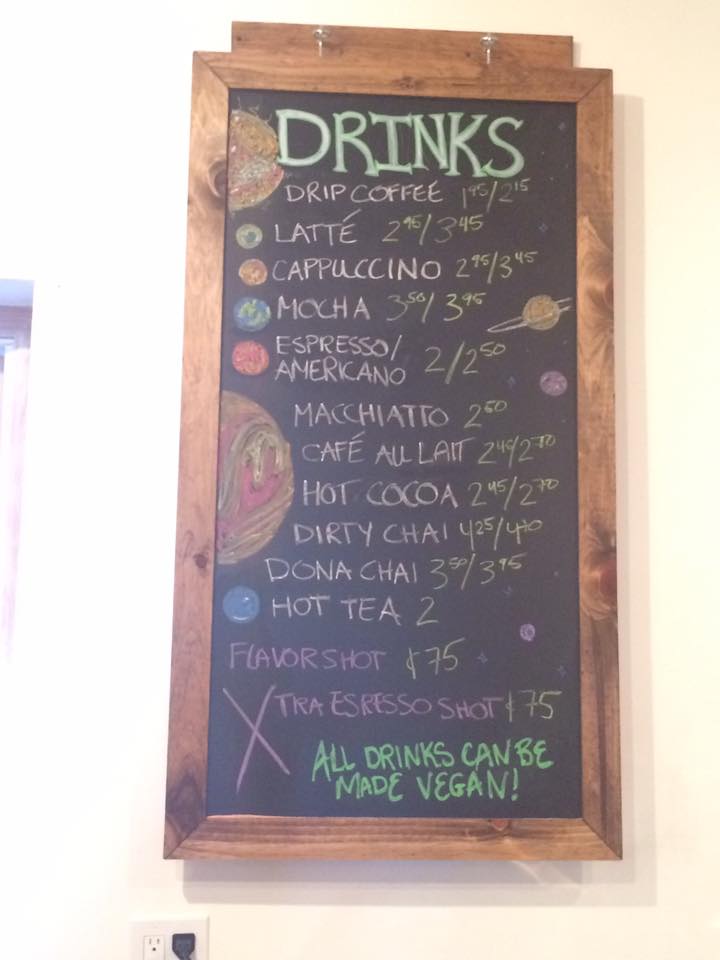 DRINKS
DRIP COFFEE 1.95/2.15
LATTÉ 2.95/3.45
CAPPUCCINO 2.95/3.45
MOCHA 3.50/3.95
ESPRESSO/
AMERICANO 2/2.50
MACCHIATTO 2.50
CAFÉ AU LAIT 2.45/2.70
HOT COCOA 2.45/2.70
DIRTY CHAI 4.25/4.70
DONA CHAI 3.50/3.95
HOT TEA 2
FLAVOR SHOT ¢75
XTRA ESRESSO SHOT ¢75
ALL DRINKS CAN BE
MADE VEGAN!